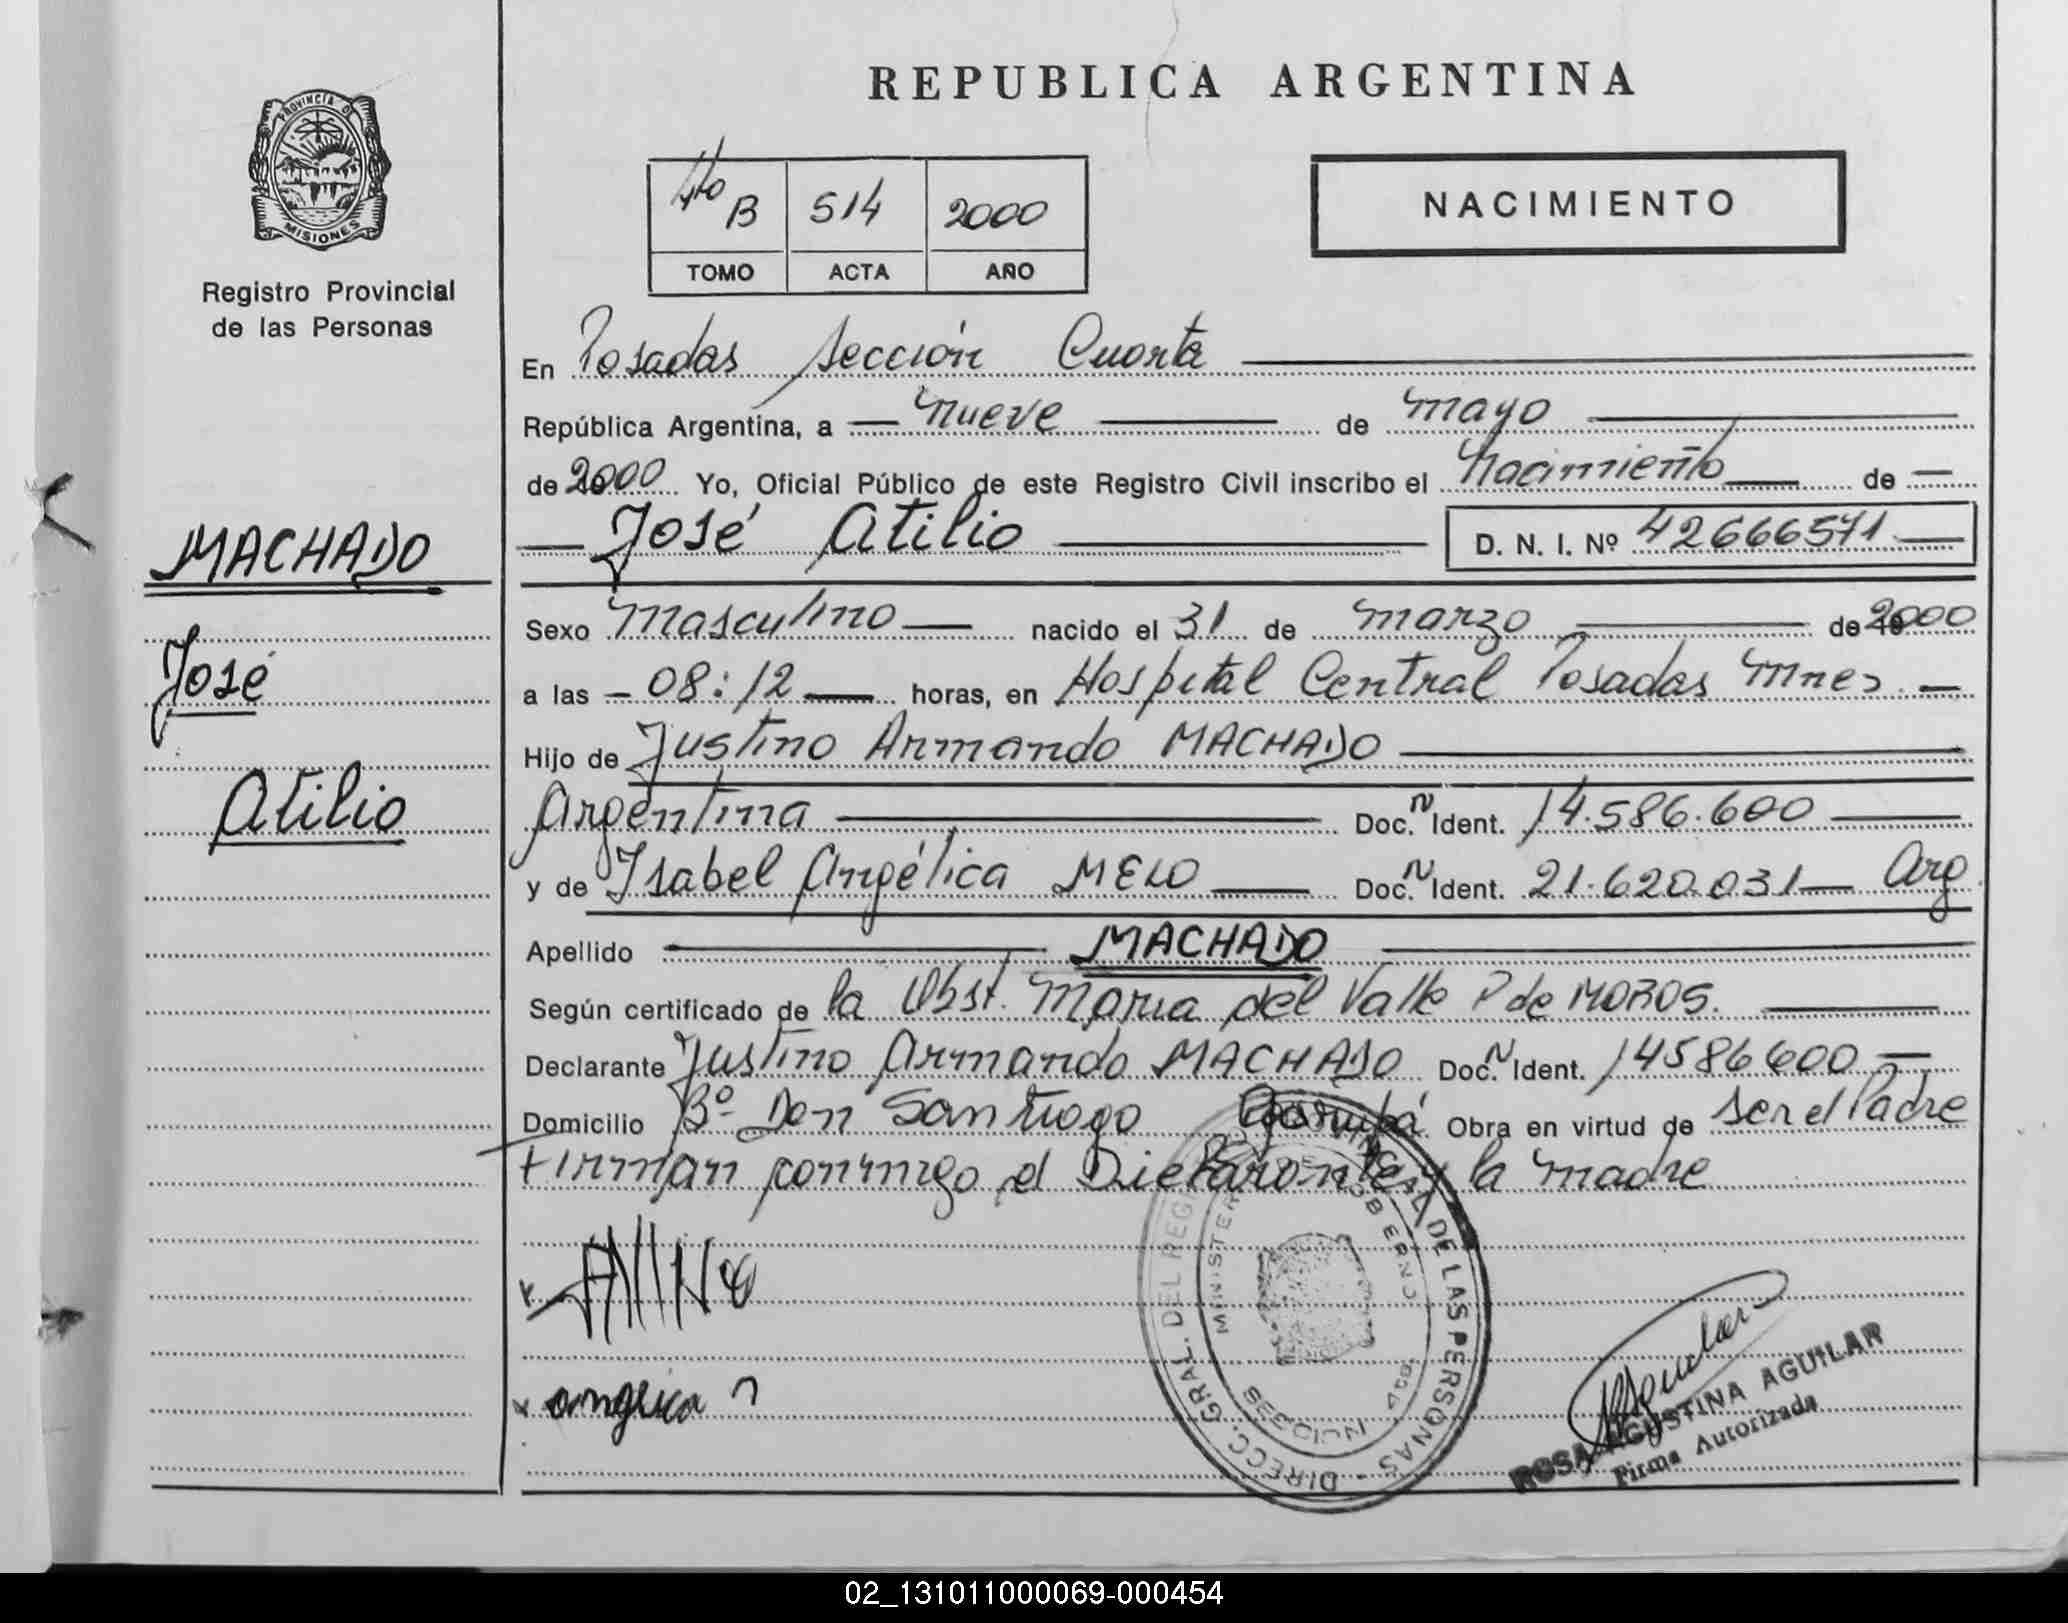 REPUBLICA ARGENTINA
PROVINCIA DE
MISIONES
Registro Provincial
de las Personas
4to B 514 2000
TOMO ACTA AÑO
NACIMIENTO
En Posadas Sección Cuarta
República Argentina, a nueve de mayo
de 2000 Yo, Oficial Público de este Registro Civil inscribo el Nacimiento de
José Atilio D. N. I. Nº 42666571
MACHADO
José
Atilio
Sexo Masculino nacido el 31 de marzo de 2000
a las 08:12 horas, en Hospital Central Posadas Mnes
Hijo de Justino Armando MACHADO
Argentina Doc. N Ident. 14.586.600
y de Isabel Angélica MELO Doc. N Ident. 21.620.031 Arg
Apellido MACHADO
Según certificado de la Obst. Maria del Valle P de MOROS.
Declarante Justino Armando MACHADO Doc. N Ident. 14586600
Domicilio Bº Don Santiago Garupá Obra en virtud de ser el Padre
Firman conmigo el Declarante y la madre
angelica
DIRECC. GRAL. DEL REG. PROVINCIAL DE LAS PERSONAS
MINISTERIO DE GOBIERNO
ROSA AGUSTINA AGUILAR
Firma Autorizada
02_131011000069-000454